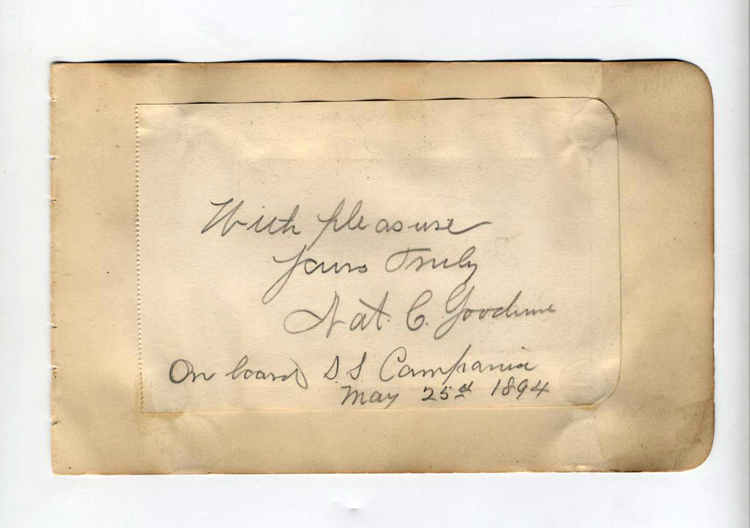 With pleasure
Yours Truly
Nat. C. Goodwin
On board S S Campania
May 25th 1894